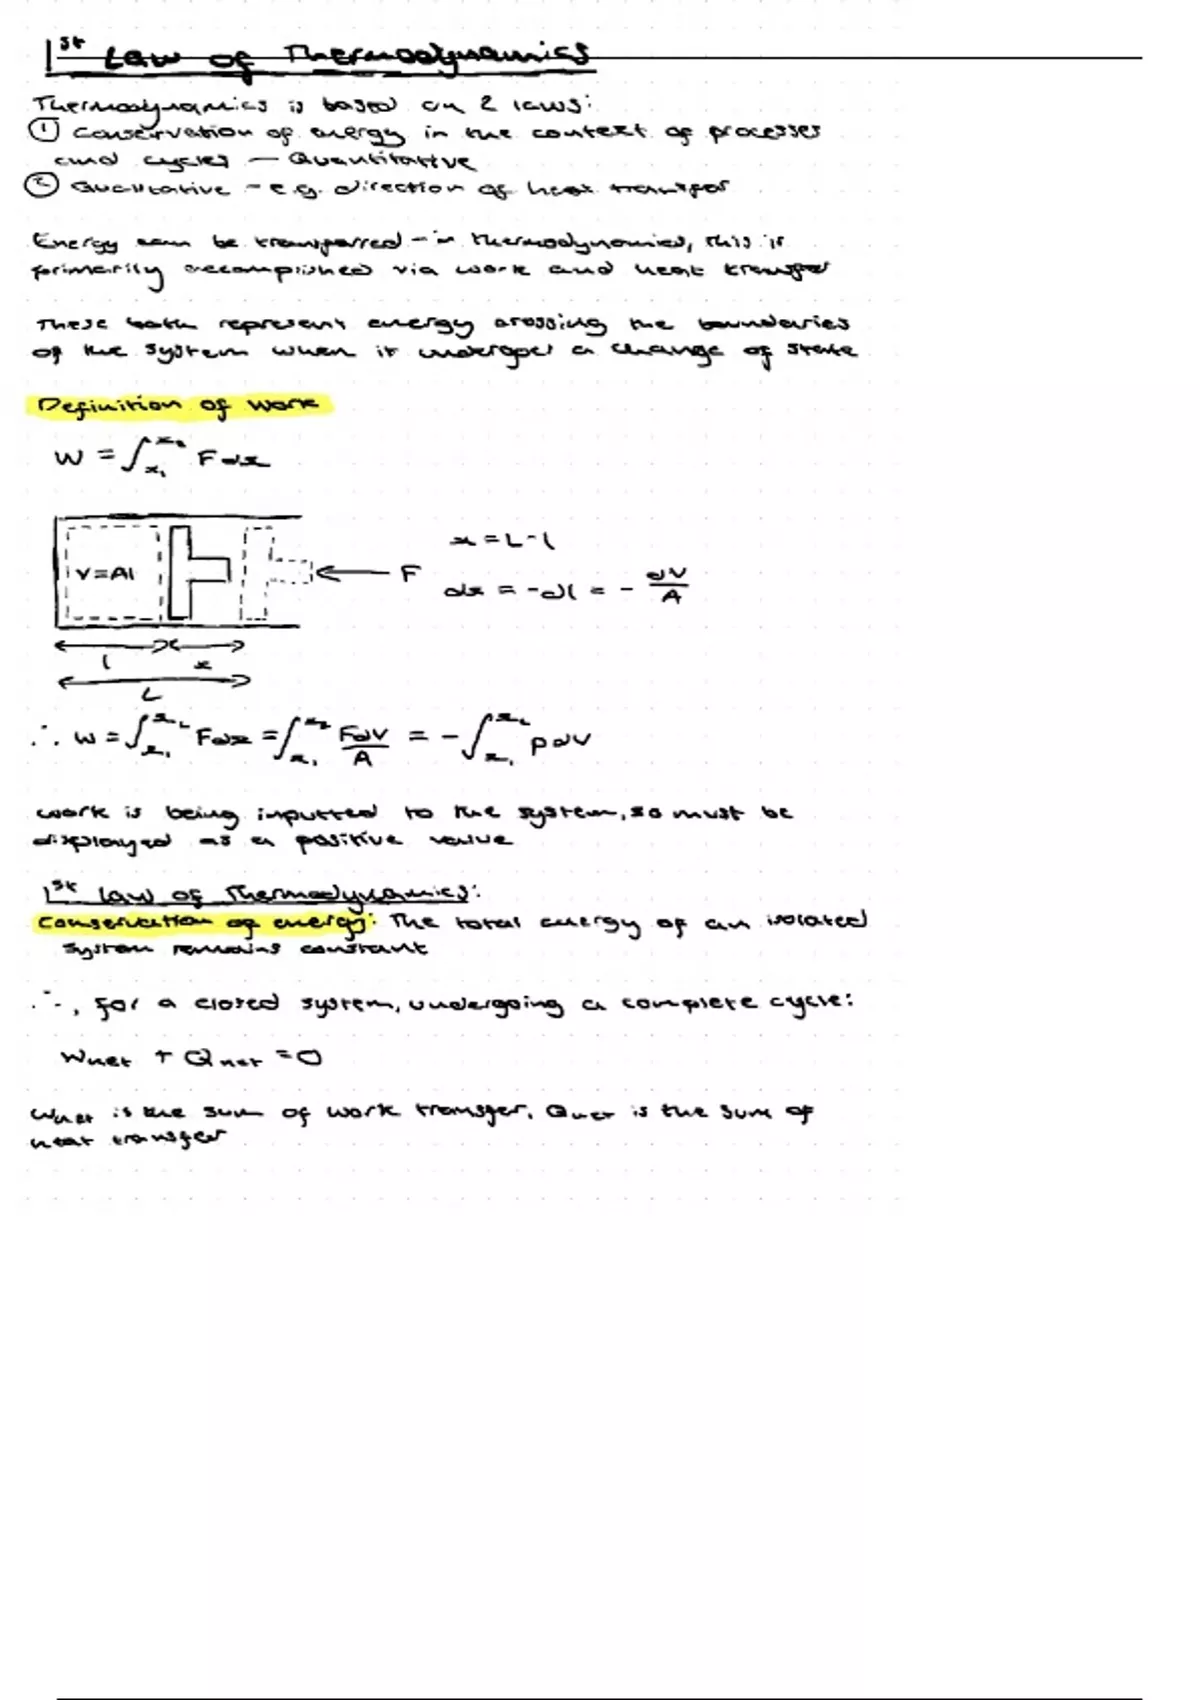 1st Law of Thermodynamics
Thermodynamics is based on 2 laws:
① Conservation of energy in the context of processes
and cycles — Quantitative
② Qualitative - e.g. direction of heat transfer
Energy can be transferred - in thermodynamics, this is
primarily accomplished via work and heat transfer
These both represent energy crossing the boundaries
of the system when it undergoes a change of state
Definition of work
W = ∫x₁^x₂ Fdx
V=Al
F
x = L-l
dx = -dl = - dV/A
l x
L
∴ W = ∫x₁^x₂ Fdx = ∫x₁^x₂ FdV/A = - ∫x₁^x₂ pdV
Work is being inputted to the system, so must be
displayed as a positive value
1st Law of Thermodynamics:
Conservation of energy: The total energy of an isolated
system remains constant
∴, for a closed system, undergoing a complete cycle:
Wnet + Qnet = 0
Wnet is the sum of work transfer, Qnet is the sum of
heat transfer